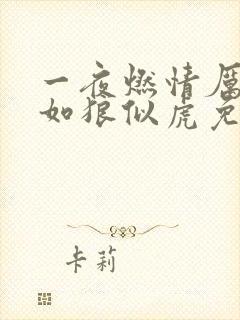 一夜燃情厉
如狼似虎免
卡莉